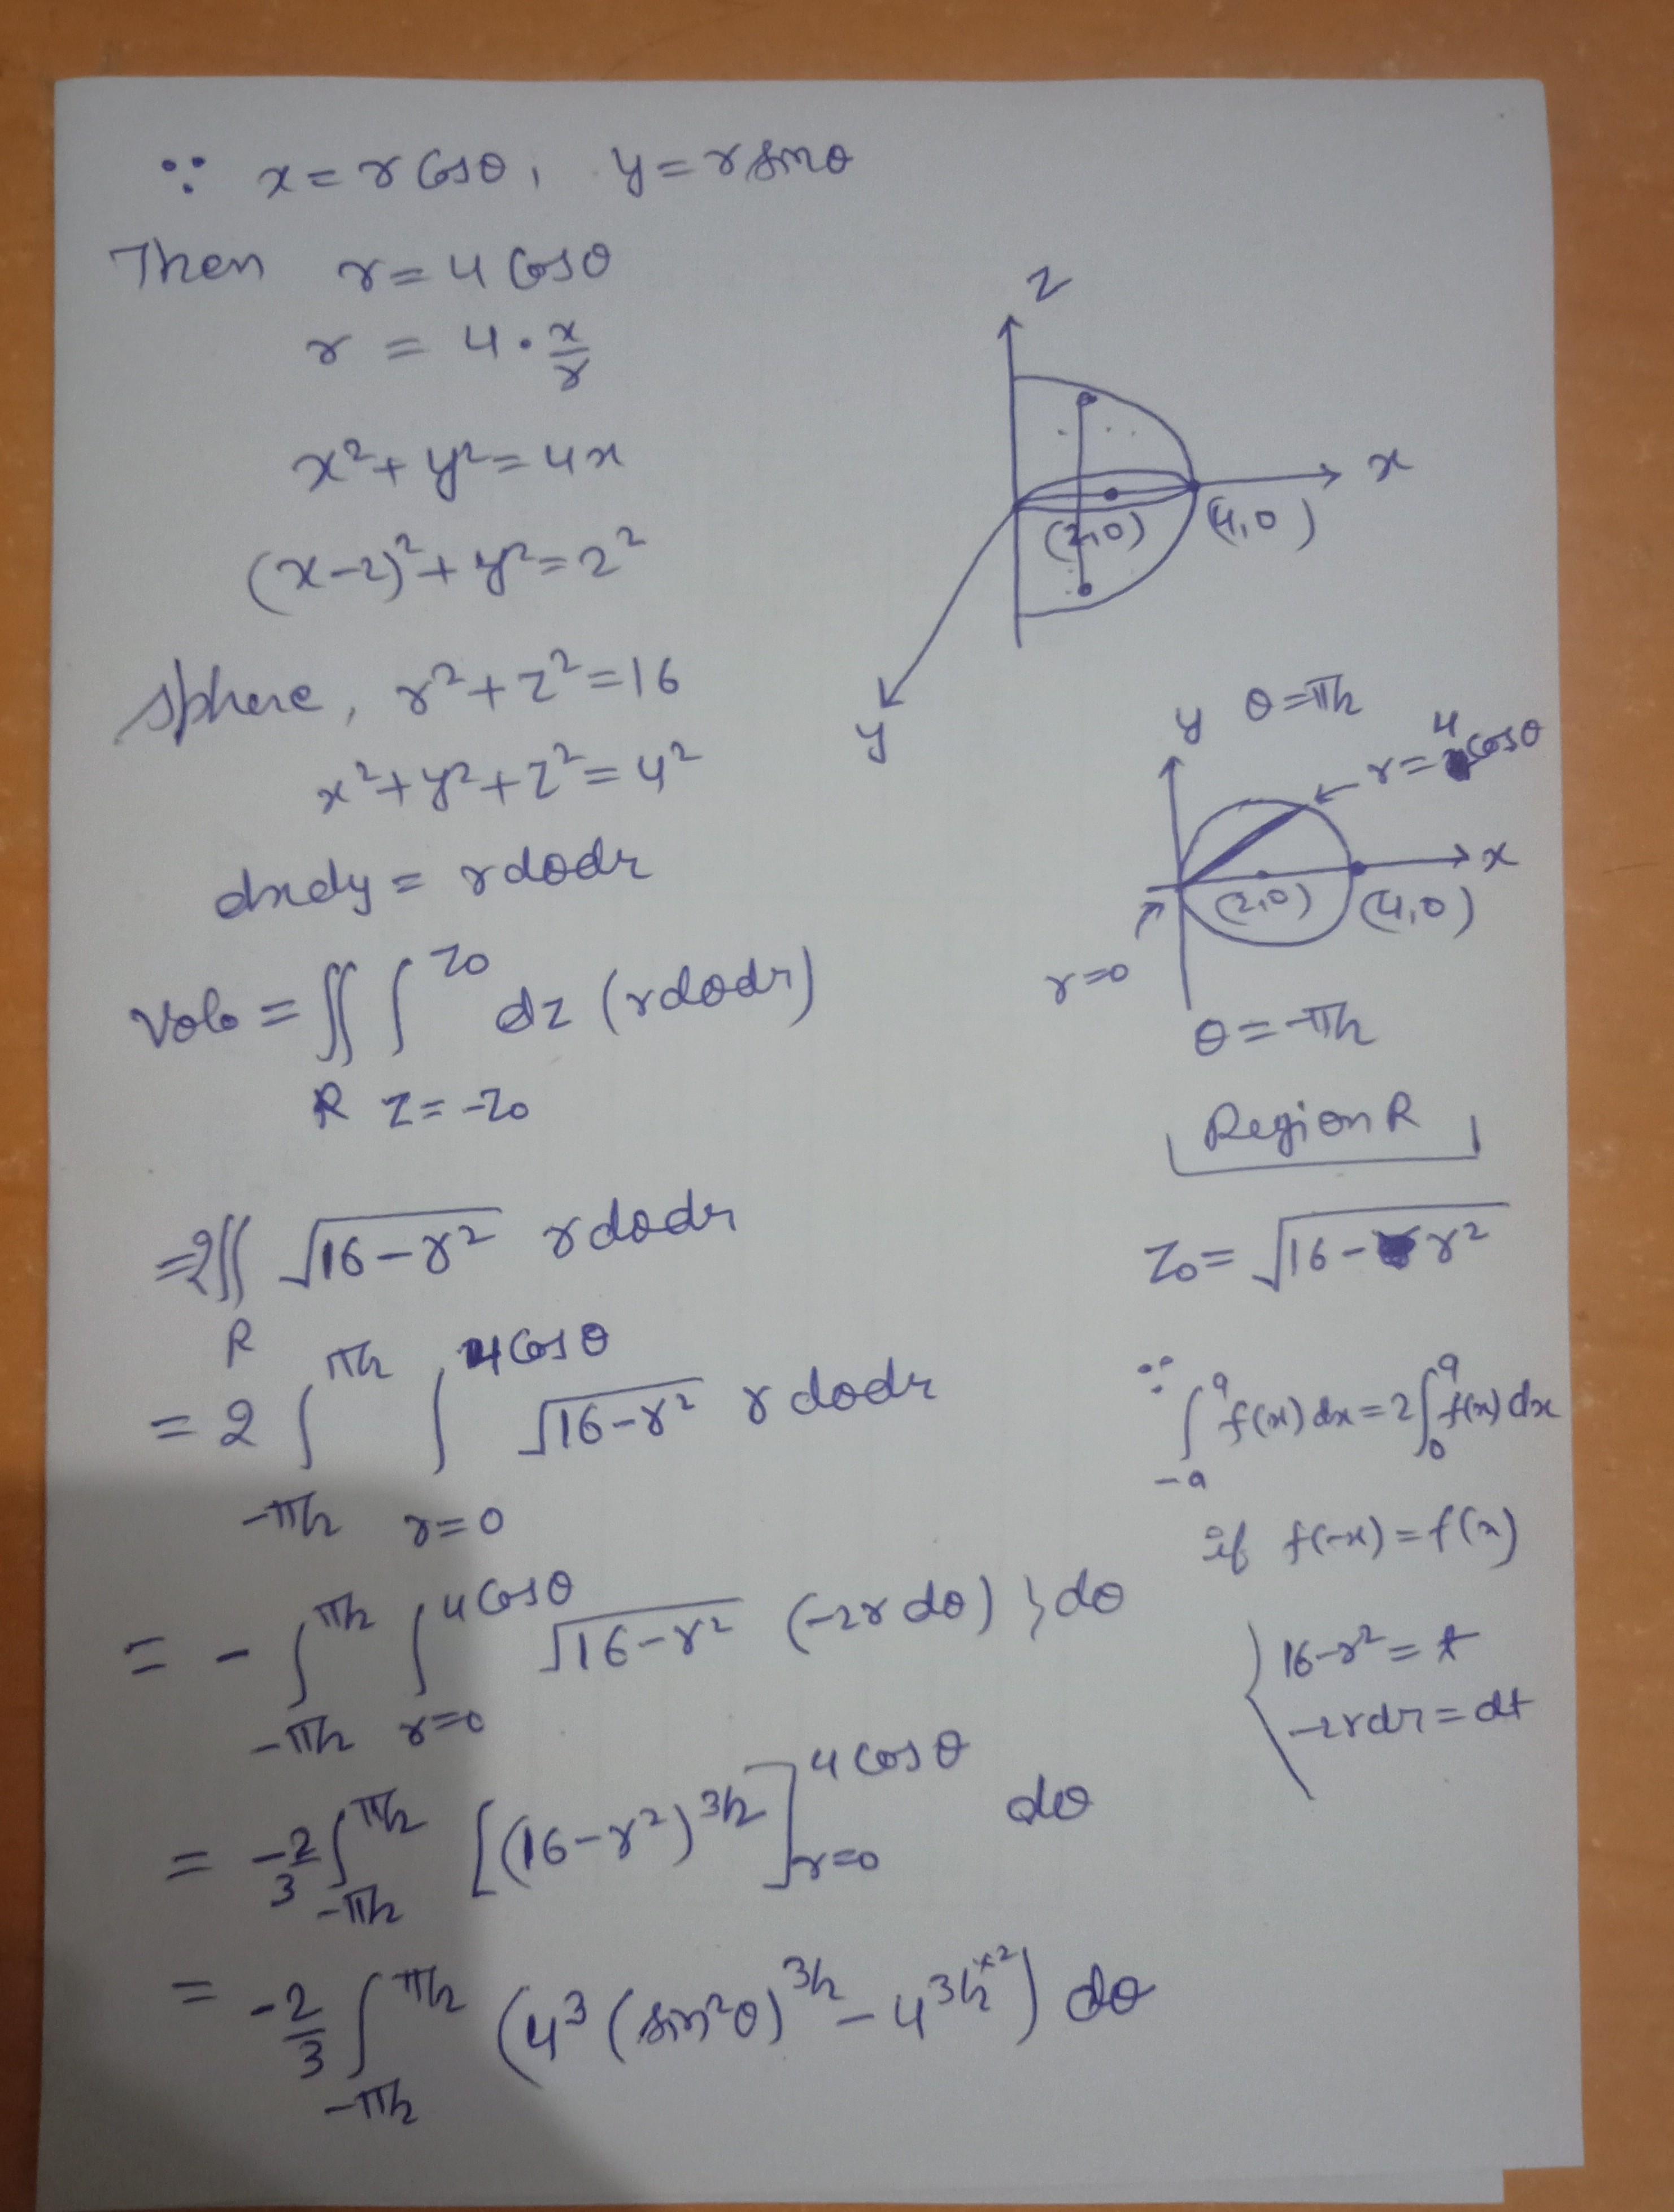 ∵ x = r Cosθ, y = r sinθ
Then r = 4 Cosθ
r = 4 · x/r
x² + y² = 4x
(x-2)² + y² = 2²
Sphere, r² + z² = 16
x² + y² + z² = 4²
dxdy = r dθ dr
Vol. = ∬ ∫ dz (r dθ dr)
z₀
R z = -z₀
= 2∬ √(16-r²) r dθ dr
R
= 2 ∫_{-π/2}^{π/2} ∫_{r=0}^{4Cosθ} √(16-r²) r dθ dr
= - ∫_{-π/2}^{π/2} ∫_{r=0}^{4Cosθ} √(16-r²) (-2r dθ) } dθ
= -2/3 ∫_{-π/2}^{π/2} [(16-r²)^{3/2}]_{r=0}^{4 Cosθ} dθ
= -2/3 ∫_{-π/2}^{π/2} (4³ (sin²θ)^{3/2} - 4^{3/2 ×2}) dθ
z
x
(2,0)
(4,0)
y
y θ = π/2
r = 4 cosθ
x
(2,0) (4,0)
r=0
θ = -π/2
Region R
z₀ = √(16 - r²)
∵ ∫_{-a}^{a} f(x) dx = 2∫_{0}^{a} f(x) dx
if f(-x) = f(x)
16-r² = t
-2rdr = dt